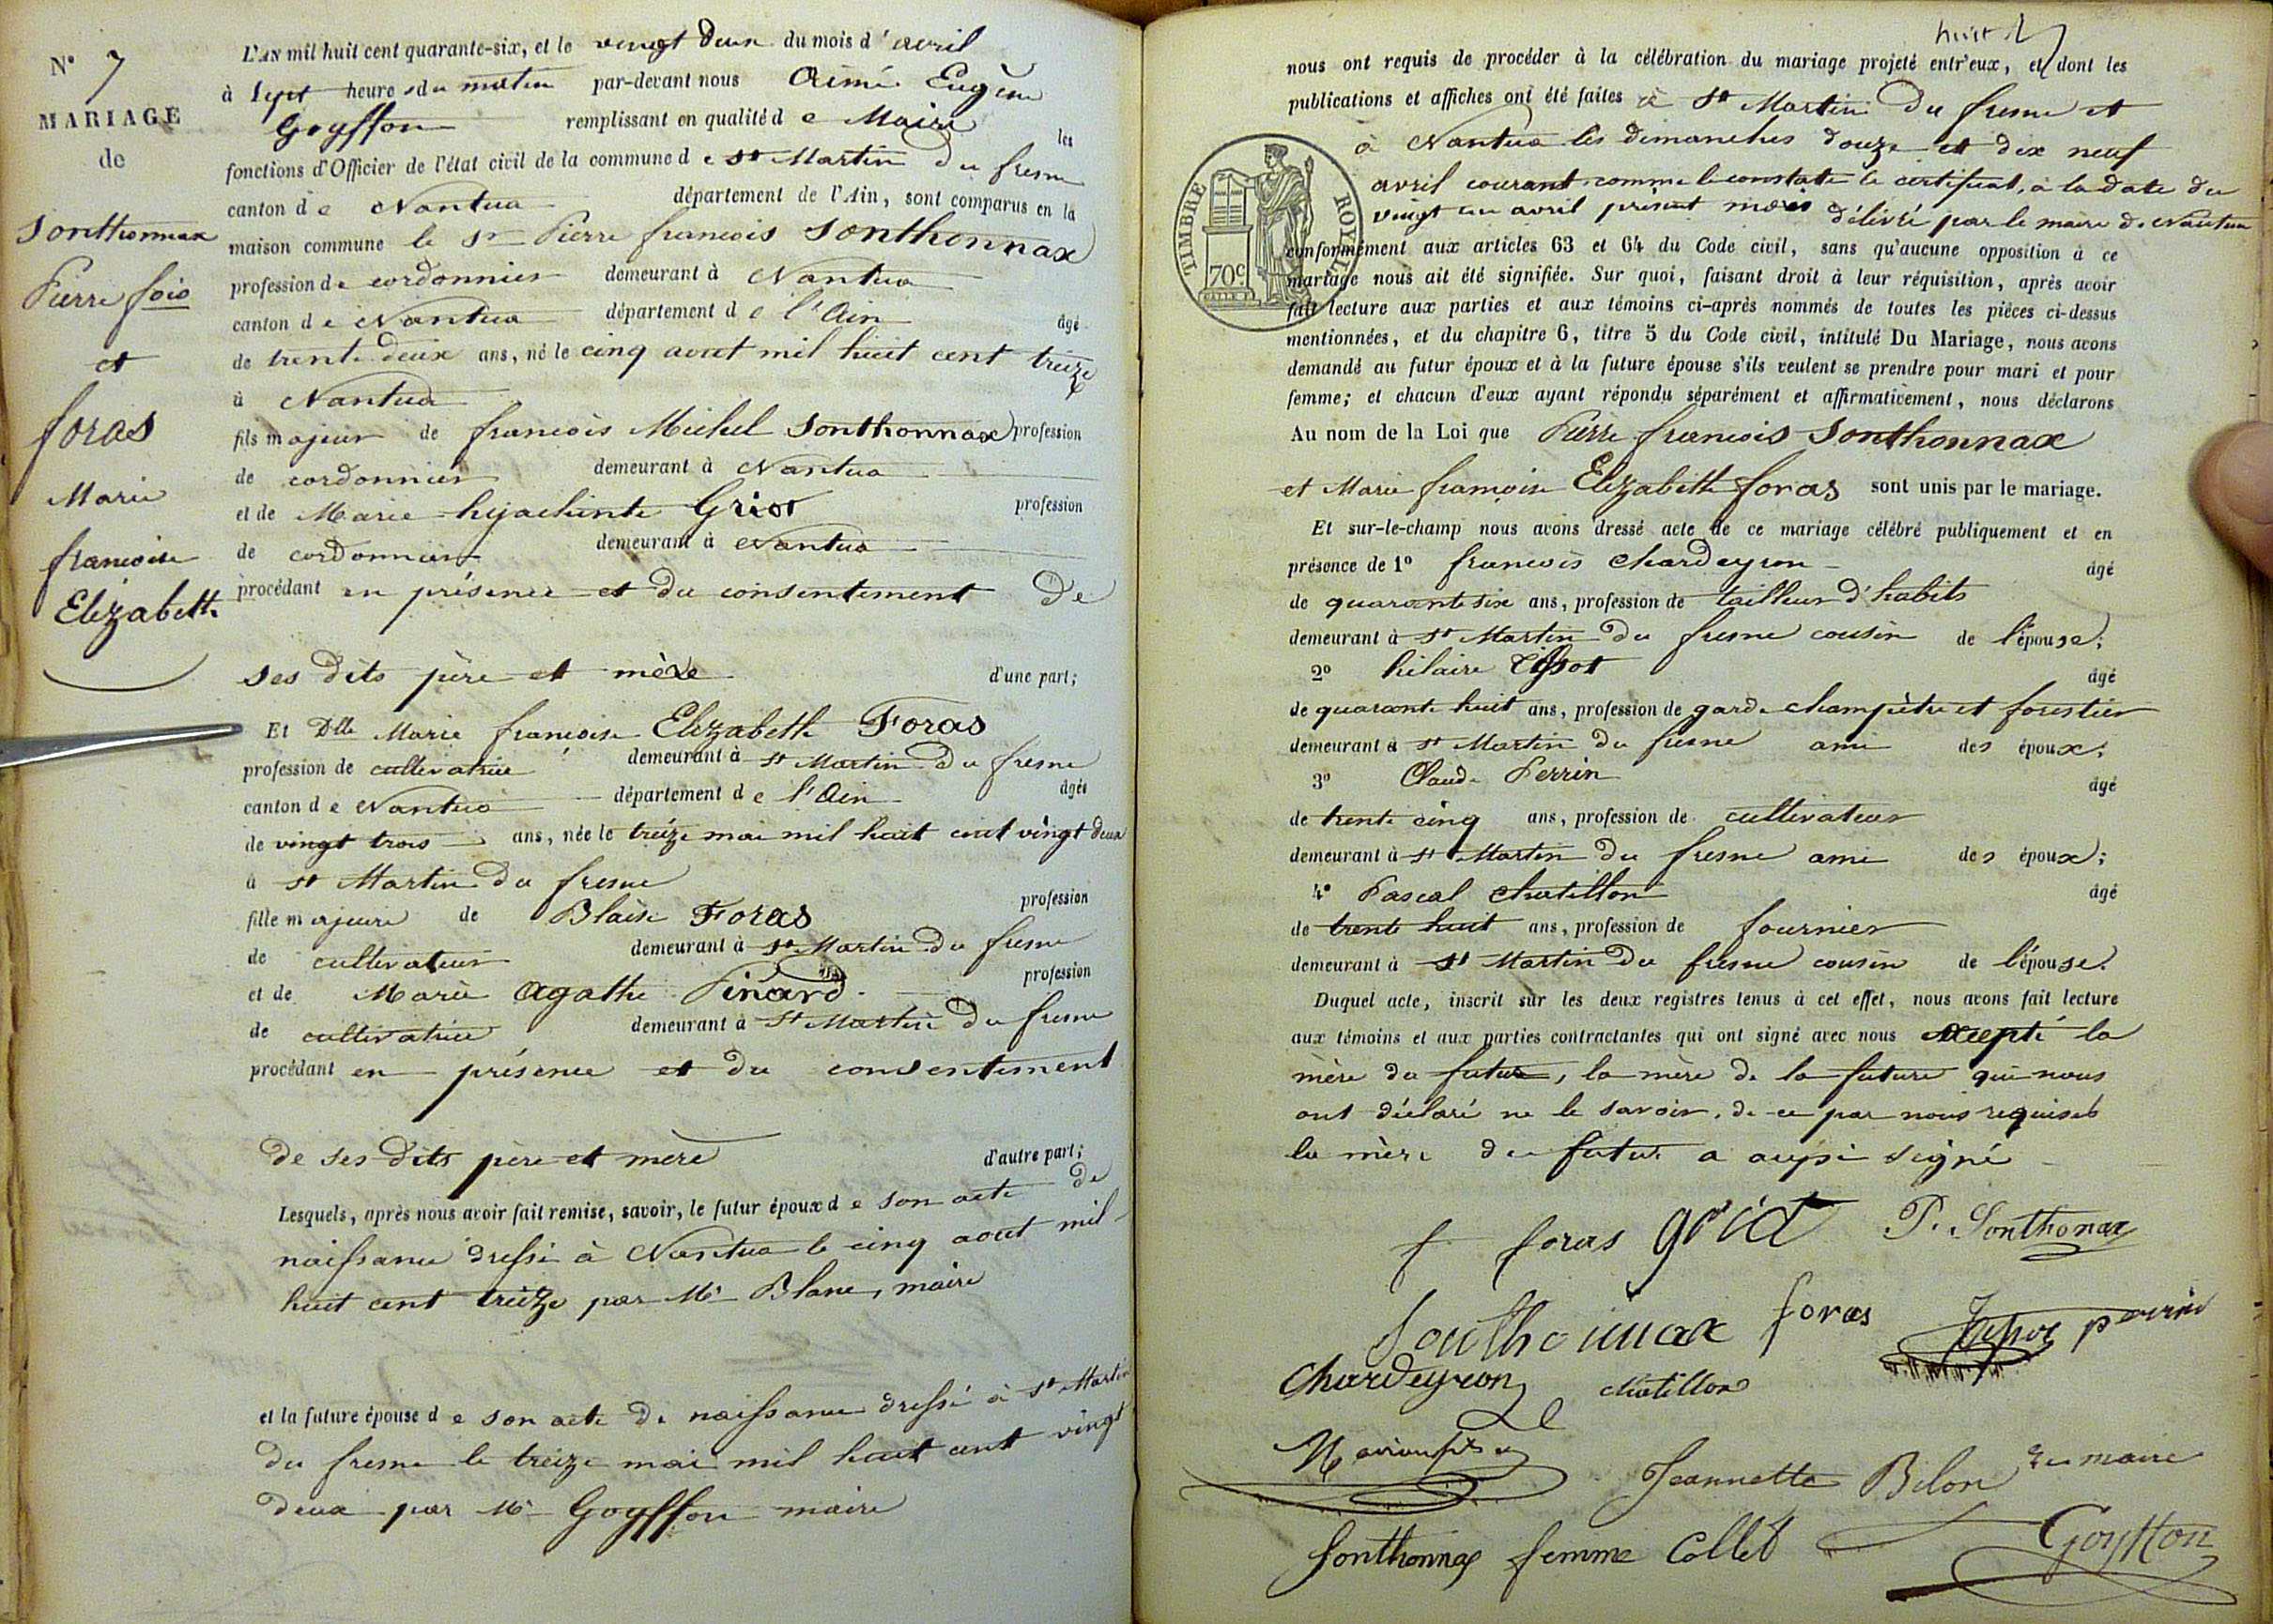 N° 7
MARIAGE
de
Sonthonnax
Pierre fois
et
foras
Marie
françoise
Elizabeth
L'AN mil huit cent quarante-six, et le vingt deux du mois d'avril
à sept heures du matin par-devant nous Aimé Eugène
Goyffon remplissant en qualité de Maire les
fonctions d'Officier de l'état civil de la commune de St Martin du fresne
canton de Nantua département de l'Ain, sont comparus en la
maison commune le Sr Pierre françois Sonthonnax
profession de cordonnier demeurant à Nantua
canton de Nantua département de l'Ain âgé
de trente deux ans, né le cinq aout mil huit cent treize
à Nantua
fils majeur de françois Michel Sonthonnax profession
de cordonnier demeurant à Nantua
et de Marie hyachinte Griot profession
de cordonnier demeurant à Nantua
procédant en présence et du consentement de
ses dits père et mère d'une part;
Et Dlle Marie françoise Elizabeth Foras
profession de cultivatrice demeurant à St Martin du fresne
canton de Nantua département de l'Ain âgée
de vingt trois ans, née le treize mai mil huit cent vingt deux
à St Martin du fresne
fille majeure de Blaise Foras profession
de cultivateur demeurant à St Martin du fresne
et de Marie Agathe Pinard profession
de cultivatrice demeurant à St Martin du fresne
procédant en présence et du consentement
de ses dits père et mère d'autre part;
Lesquels, après nous avoir fait remise, savoir, le futur époux de son acte de
naissance dressé à Nantua le cinq aout mil
huit cent treize par Mr Blanc, maire
et la future épouse de son acte de naissance dressé à St Martin
du fresne le treize mai mil huit cent vingt
deux par Mr Goyffon maire
huit
nous ont requis de procéder à la célébration du mariage projeté entr'eux, et dont les
publications et affiches ont été faites à St Martin du fresne et
à Nantua les dimanches douze et dix neuf
avril courant comme le constate le certificat, à la date du
vingt un avril présent mois délivré par le maire de Nantua
TIMBRE ROYAL
70c
conformément aux articles 63 et 64 du Code civil, sans qu'aucune opposition à ce
mariage nous ait été signifiée. Sur quoi, faisant droit à leur réquisition, après avoir
fait lecture aux parties et aux témoins ci-après nommés de toutes les pièces ci-dessus
mentionnées, et du chapitre 6, titre 5 du Code civil, intitulé Du Mariage, nous avons
demandé au futur époux et à la future épouse s'ils veulent se prendre pour mari et pour
femme; et chacun d'eux ayant répondu séparément et affirmativement, nous déclarons
Au nom de la Loi que Pierre françois Sonthonnax
et Marie françoise Elizabeth foras sont unis par le mariage.
Et sur-le-champ nous avons dressé acte de ce mariage célébré publiquement et en
présence de 1° françois Chardeyron âgé
de quarante six ans, profession de tailleur d'habits
demeurant à St Martin du fresne cousin de l'épouse;
2° hilaire Tissot âgé
de quarante huit ans, profession de garde champêtre et forestier
demeurant à St Martin du fresne ami des époux;
3° Claude Perrin âgé
de trente cinq ans, profession de cultivateur
demeurant à St Martin du fresne ami des époux;
4° Pascal Chatillon âgé
de trente huit ans, profession de fournier
demeurant à St Martin du fresne cousin de l'épouse.
Duquel acte, inscrit sur les deux registres tenus à cet effet, nous avons fait lecture
aux témoins et aux parties contractantes qui ont signé avec nous excepté la
mère du futur, la mère de la future qui nous
ont déclaré ne le savoir, de ce par nous requises
la mère du futur a aussi signé
f foras griot P. Sonthonax
Sonthonnax foras Tissot perrin
Chardeyron chatillon
Jeannette Bilon Le maire
Sonthonnax femme Collet Goyffon